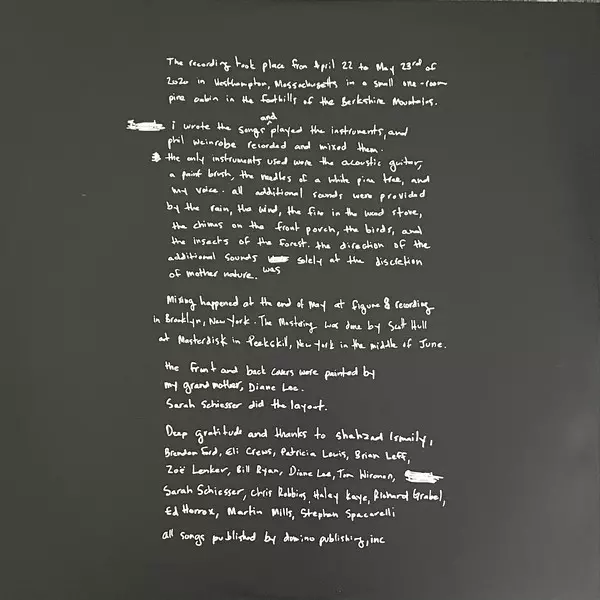 The recording took place from April 22 to May 23rd of
2020 in Westhampton, Massachusetts in a small one-room
pine cabin in the foothills of the Berkshire Mountains.
i wrote the songs and played the instruments, and
phil weinrobe recorded and mixed them.
the only instruments used were the acoustic guitar,
a paint brush, the needles of a white pine tree, and
my voice. all additional sounds were provided
by the rain, the wind, the fire in the wood stove,
the chimes on the front porch, the birds, and
the insects of the forest. the direction of the
additional sounds was solely at the discretion
of mother nature.
Mixing happened at the end of May at figure 8 recording
in Brooklyn, New York. The Mastering was done by Scott Hull
at Masterdisk in Peekskill, New York in the middle of June.
the front and back covers were painted by
my grandmother, Diane Lee.
Sarah Schiesser did the layout.
Deep gratitude and thanks to shahzad Ismaily,
Brendan Ford, Eli Crews, Patricia Lewis, Brian Leff,
Zoë Lenker, Bill Ryan, Diane Lee, Tom Wironen,
Sarah Schiesser, Chris Robbins, Haley Kaye, Richard Grabel,
Ed Horrox, Martin Mills, Stephan Spacarelli
all songs published by domino publishing, inc